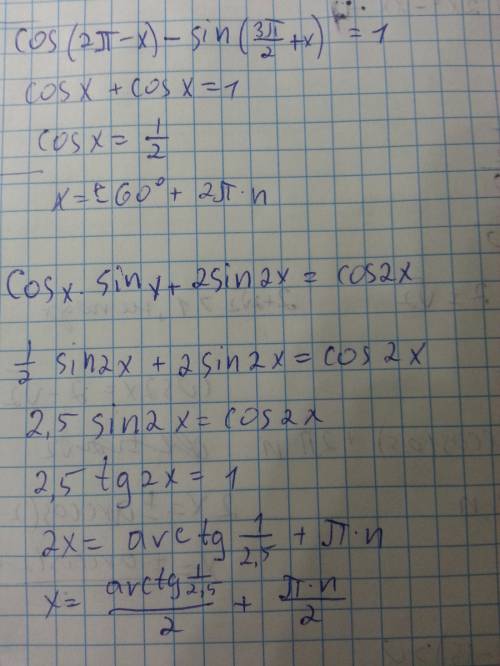 cos(2π-x) - sin(3π/2+x) = 1
cosx + cosx = 1
cosx = 1/2
x = ±60° + 2π·n
Cosx · sinx + 2sin2x = cos2x
1/2 sin2x + 2sin2x = cos2x
2,5 sin2x = cos2x
2,5 tg2x = 1
2x = arctg 1/2,5 + π·n
x = (arctg 1/2,5)/2 + (π·n)/2